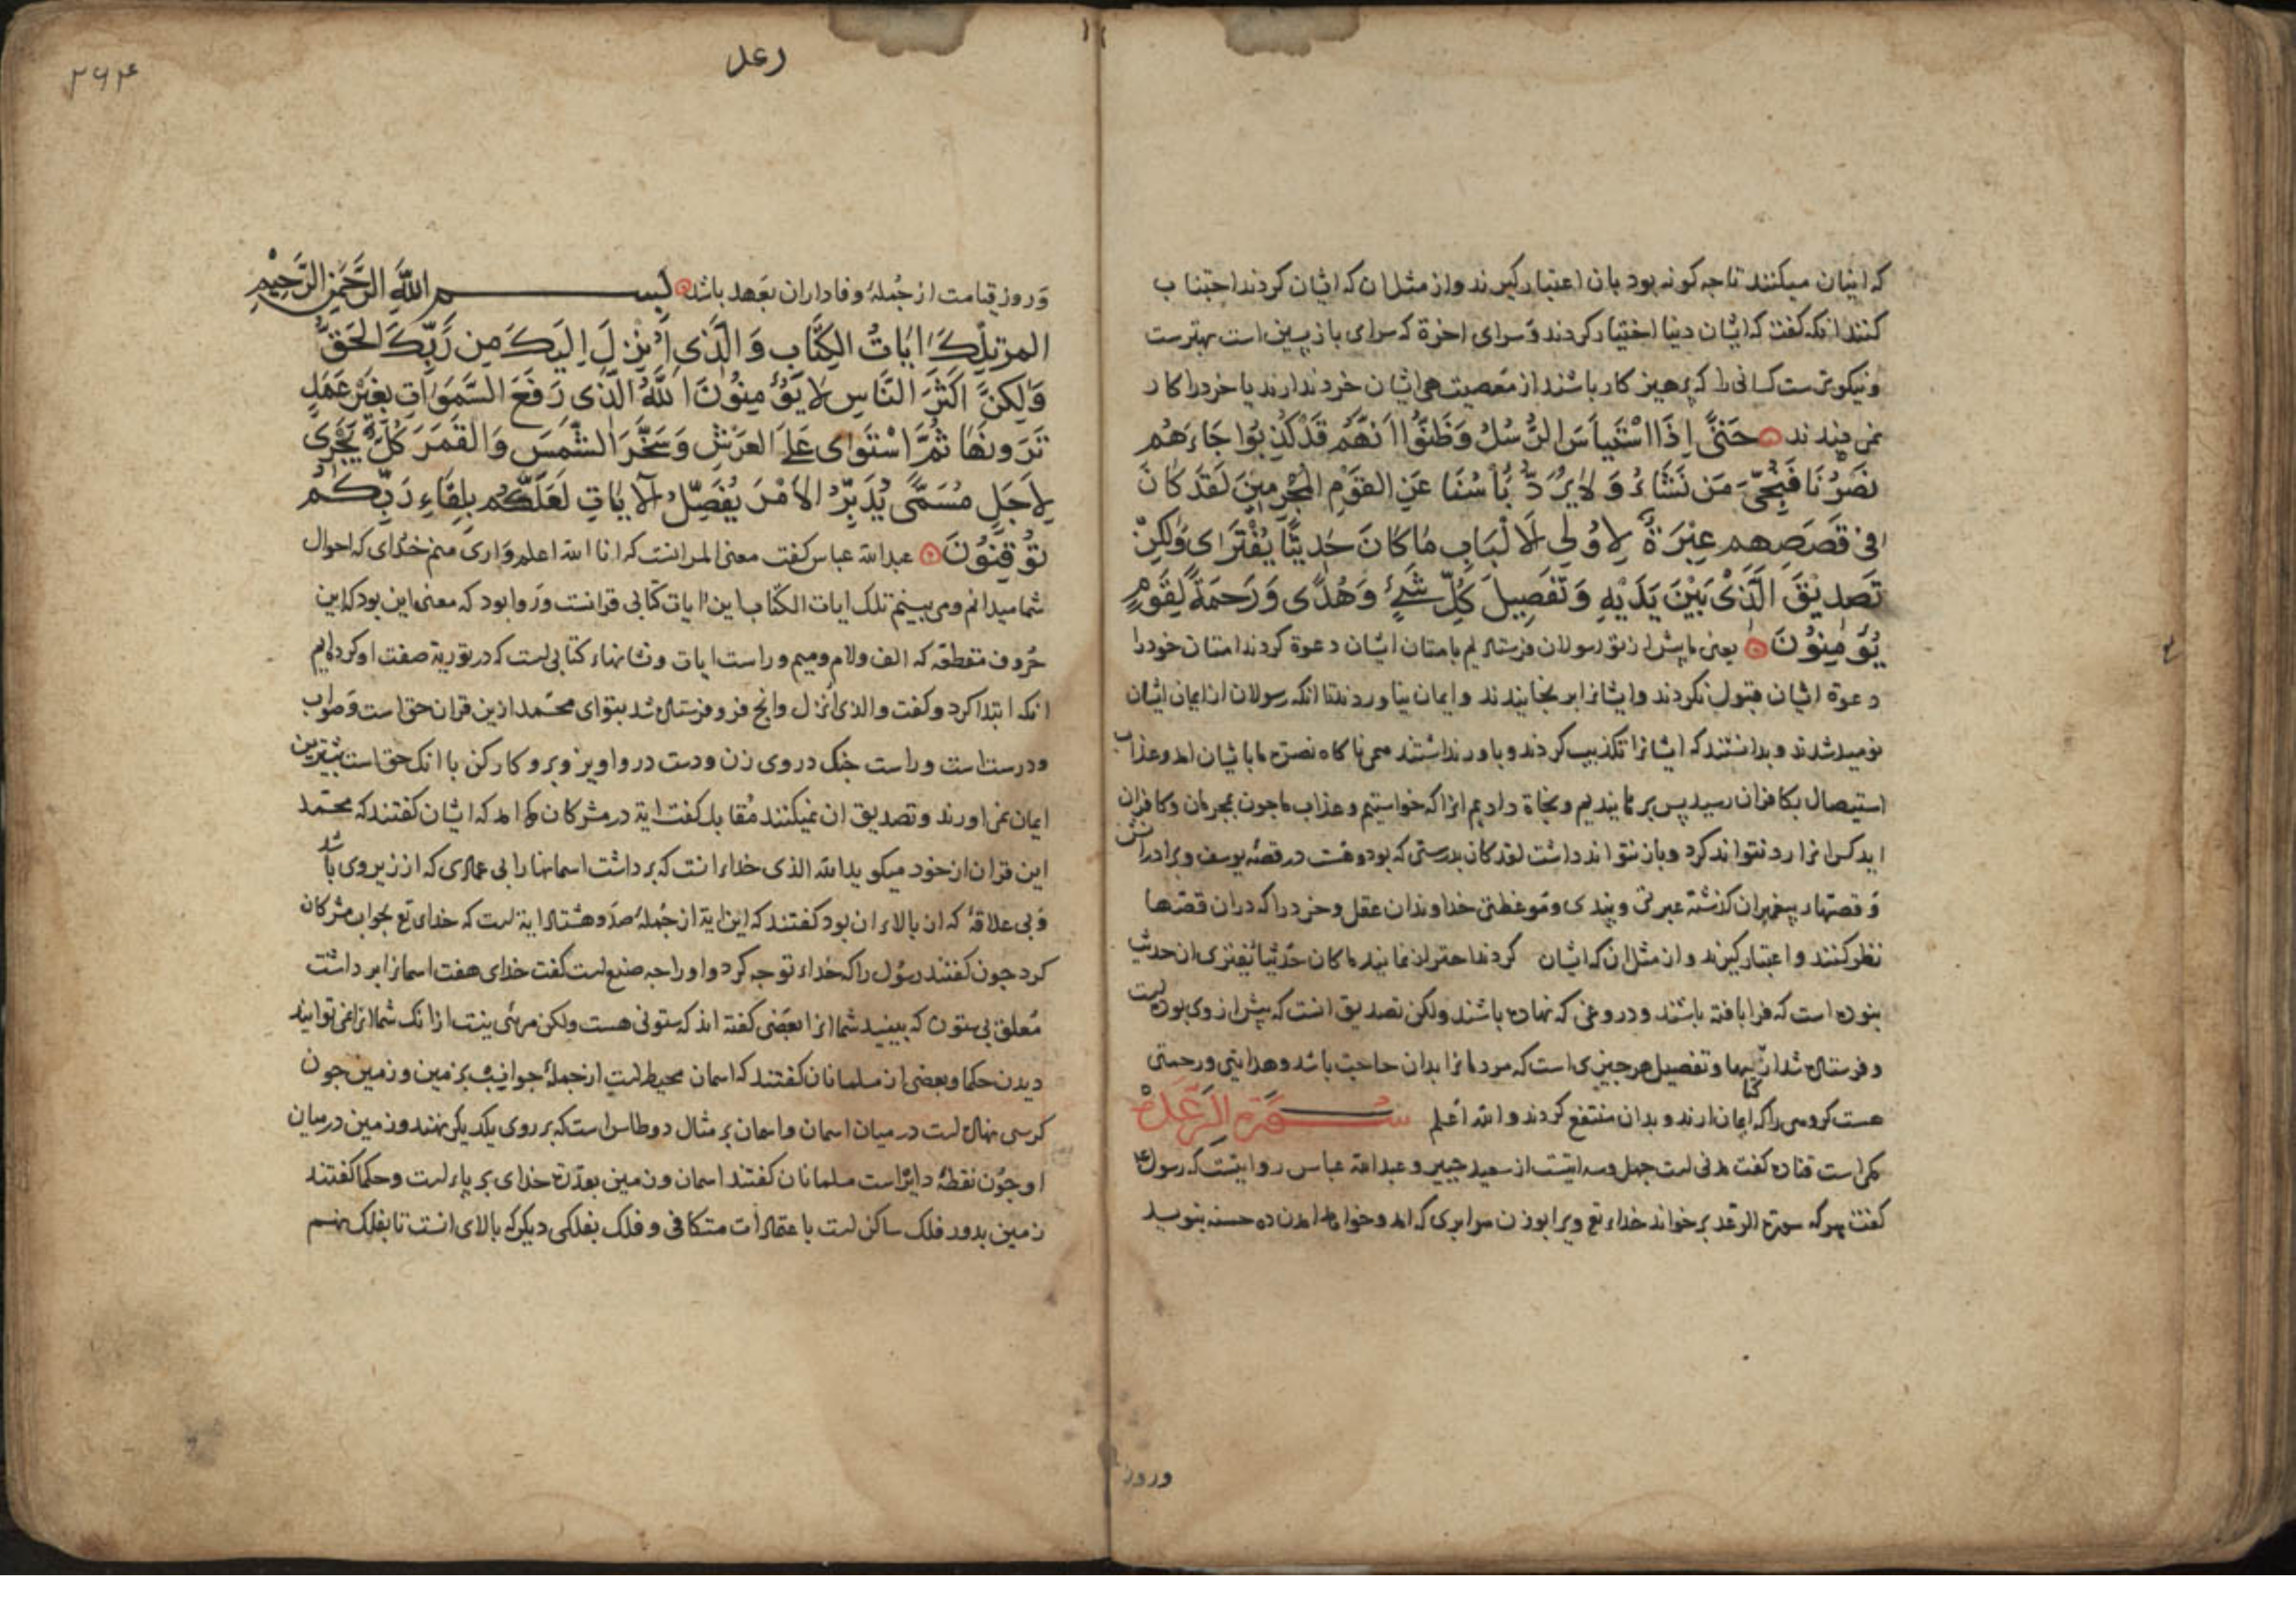 که ایشان میکنند تا چه کونه بود بان اعتبار کیرند واز مثل ان که ایشان کردند اجتناب
کنند انکه کفت که ایشان دنیا اختیار کردند وسرای اخرة که سرای بازپسین است بهترست
ونیکوترست کسانی را که پرهیز کار باشند از معصیت همی ایشان خرد ندارند یا خرد را کار
نمی بندند حَتّٰى اِذَا اسْتَيأَسَ الرُّسُلُ وَظَنُّوا اَنَّهُم قَدْ كُذِبُوا جَاءَهُم
نَصْرُنَا فَنُجِّىَ مَن نَشَاءُ وَلَا يُرَدُّ بَأسُنَا عَنِ القَوْمِ المُجْرِمِينَ لَقَد كَانَ
فى قَصَصِهِم عِبْرَةٌ لِاُولِى الَالْبَابِ مَا كَانَ حَدِيثًا يُفْتَرَاى وَلٰكِن
تَصْدِيقَ الَّذِى بَيْنَ يَدَيْهِ وَتَفْصِيلَ كُلِّ شَىْءٍ وَهُدًى وَرَحْمَةً لِقَوْمٍ
يُؤمِنُونَ یعنی ما پیش از تو رسولان فرستادیم بامتان ایشان دعوة کردند امتان خود را
دعوة ایشان قبول نکردند وایشانرا برنجانیدند وایمان نیاوردند تا انکه رسولان از ایمان ایشان
نومید شدند وبدانستند که ایشانرا تکذیب کردند وباور نداشتند همی ناکاه نصرة ما بایشان امد وعذاب
استیصال بکافران رسید پس برهانیدیم ونجاة دادیم انرا که خواستیم وعذاب ما چون بمجرمان وکافران
اید کس انرا رد نتواند کرد وباز نتواند داشت لقد کان بدرستی که بود وهست در قصه یوسف وبرادرانش
وقصهاء پیغمبران کذشته عبرتی وپندی وموعظتی خداوندان عقل وخرد را که دران قصها
نظر کنند واعتبار کیرند واز مثل ان که ایشان کردند احتراز نمایند ما کان حدیثا یفتری ان حدیث
نبوده است که فرا بافته باشند ودروغی که نهاده باشند ولکن تصدیق انست که پیش از وی بوده است
وفرستاده شد از کتابها وتفصیل هر چیزی است که مردمانرا بدان حاجت باشد وهدایتی ورحمتی
هست کروهی را که ایمان ارند وبدان منتفع کردند والله اعلم سورة الرعد
مکی است قتاده کفت مدنی است چهل وسه ایتست از سعید جبیر وعبدالله عباس روایتست که رسول
کفت هر که سورة الرعد برخواند خداء تع ویرا بوزن هر ابری که امد وخواهد امدن ده حسنه بنویسد
وروز
رعد
۲۶۴
وروز قیامت از جمله وفاداران بعهد باشد بسم اللهِ الرَّحمٰنِ الرَّحِيمِ
المر تِلْكَ اٰيَاتُ الكِتَابِ وَالَّذِى اُنْزِلَ اِلَيكَ مِن رَبِّكَ الحَقُّ
وَلٰكِنَّ اَكْثَرَ النَّاسِ لَا يُؤمِنُونَ اَللّٰهُ الَّذِى رَفَعَ السَّمَوَاتِ بِغَيْرِ عَمَدٍ
تَرَونَهَا ثُمَّ اسْتَوَاى عَلَى العَرْشِ وَسَخَّرَ الشَّمسَ وَالقَمَرَ كُلٌّ يَجْرِى
لِاَجَلٍ مُسَمًّى يُدَبِّرُ الاَمْرَ يُفَصِّلُ الاٰيَاتِ لَعَلَّكُم بِلِقَاءِ رَبِّكُم
تُوقِنُونَ عبدالله عباس کفت معنی المر انست که انا الله اعلم واری منم خدای که احوال
شما میدانم ومی بینم تلک ایات الکتاب این ایات کتابی قرانست وروا بود که معنی این بود که این
حروف مقطعه که الف ولام ومیم وراست ایات ونشانهاء کتابی است که در توریة صفت او کرده ایم
انکه ابتدا کرد وکفت والذی انزل وانچ فرو فرستاده شد بتو ای محمد ازین قران حق است وصواب
ودرست است وراست چنک دروی زن ودست درو اویز وبرو کار کن با انک حق است بیشترین
ایمان نمی اورند وتصدیق ان نمیکنند مقابل کفت ایة در مشرکان مکه امد که ایشان کفتند که محمد
این قران از خود میکوید الله الذی خداء انست که برداشت اسمانها را بی عمادی که از زیر وی باشد
وبی علاقه که ان بالاء ان بود کفتند که این ایة از جمله صد وهشتاد ایة است که خدای تع بجواب مشرکان
کرد چون کفتند رسول را که خداء تو چه کرد واو را چه صنع است کفت خدای هفت اسمانرا برداشت
معلق بی ستون که ببینید شما انرا بعضی کفته اند که ستونی هست ولکن مرئی نیست ازانک شما انرا نمی توانید
دیدن حکما وبعضی از مسلمانان کفتند که اسمان محیط است از جمله جوانب بزمین وزمین چون
کرسی نهاده است در میان اسمان واسمان بر مثال دو طاس است که بر روی یکدیکر نهند وزمین در میان
او چون نقطه دایره است مسلمانان کفتند اسمان وزمین بقدرة خدای بر پاء است وحکما کفتند
زمین بدور فلک ساکن است باعتمادات متکافی وفلک بفلکی دیکر که بالای انست تا بفلک نهم